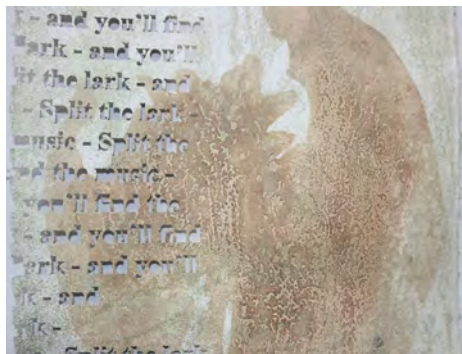 - and you'll find
lark - and you'll
lit the lark - and
- Split the lark -
music - Split the
nd the music -
you'll find the
- and you'll find
lark - and you'll
rk - and
rk -
- Split the lark